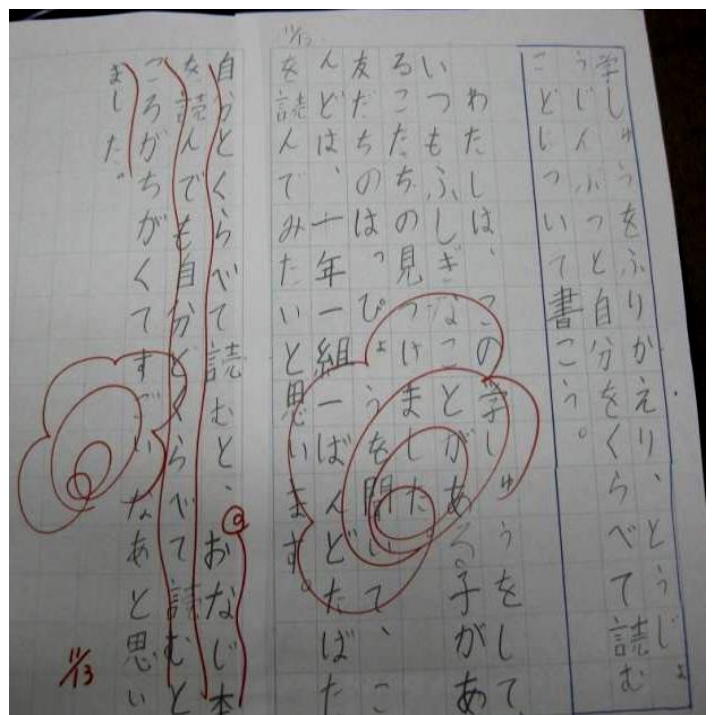 学しゅうをふりかえり、とうじょ
うじんぶつと自分をくらべて読む
ことについて書こう。
わたしは、この学しゅうをして、
いつもふしぎなことがある。子があ
るこたちの見つけました
友だちのはっぴょうを聞いて、こ
んどは、一年一組一ばんどたばた
を読んでみたいと思います。
11/13
自分とくらべて読むと、おなじ本
を読んでも自分とくらべて読むと
ころがちがくてすごいなあと思い
ました。
11/13